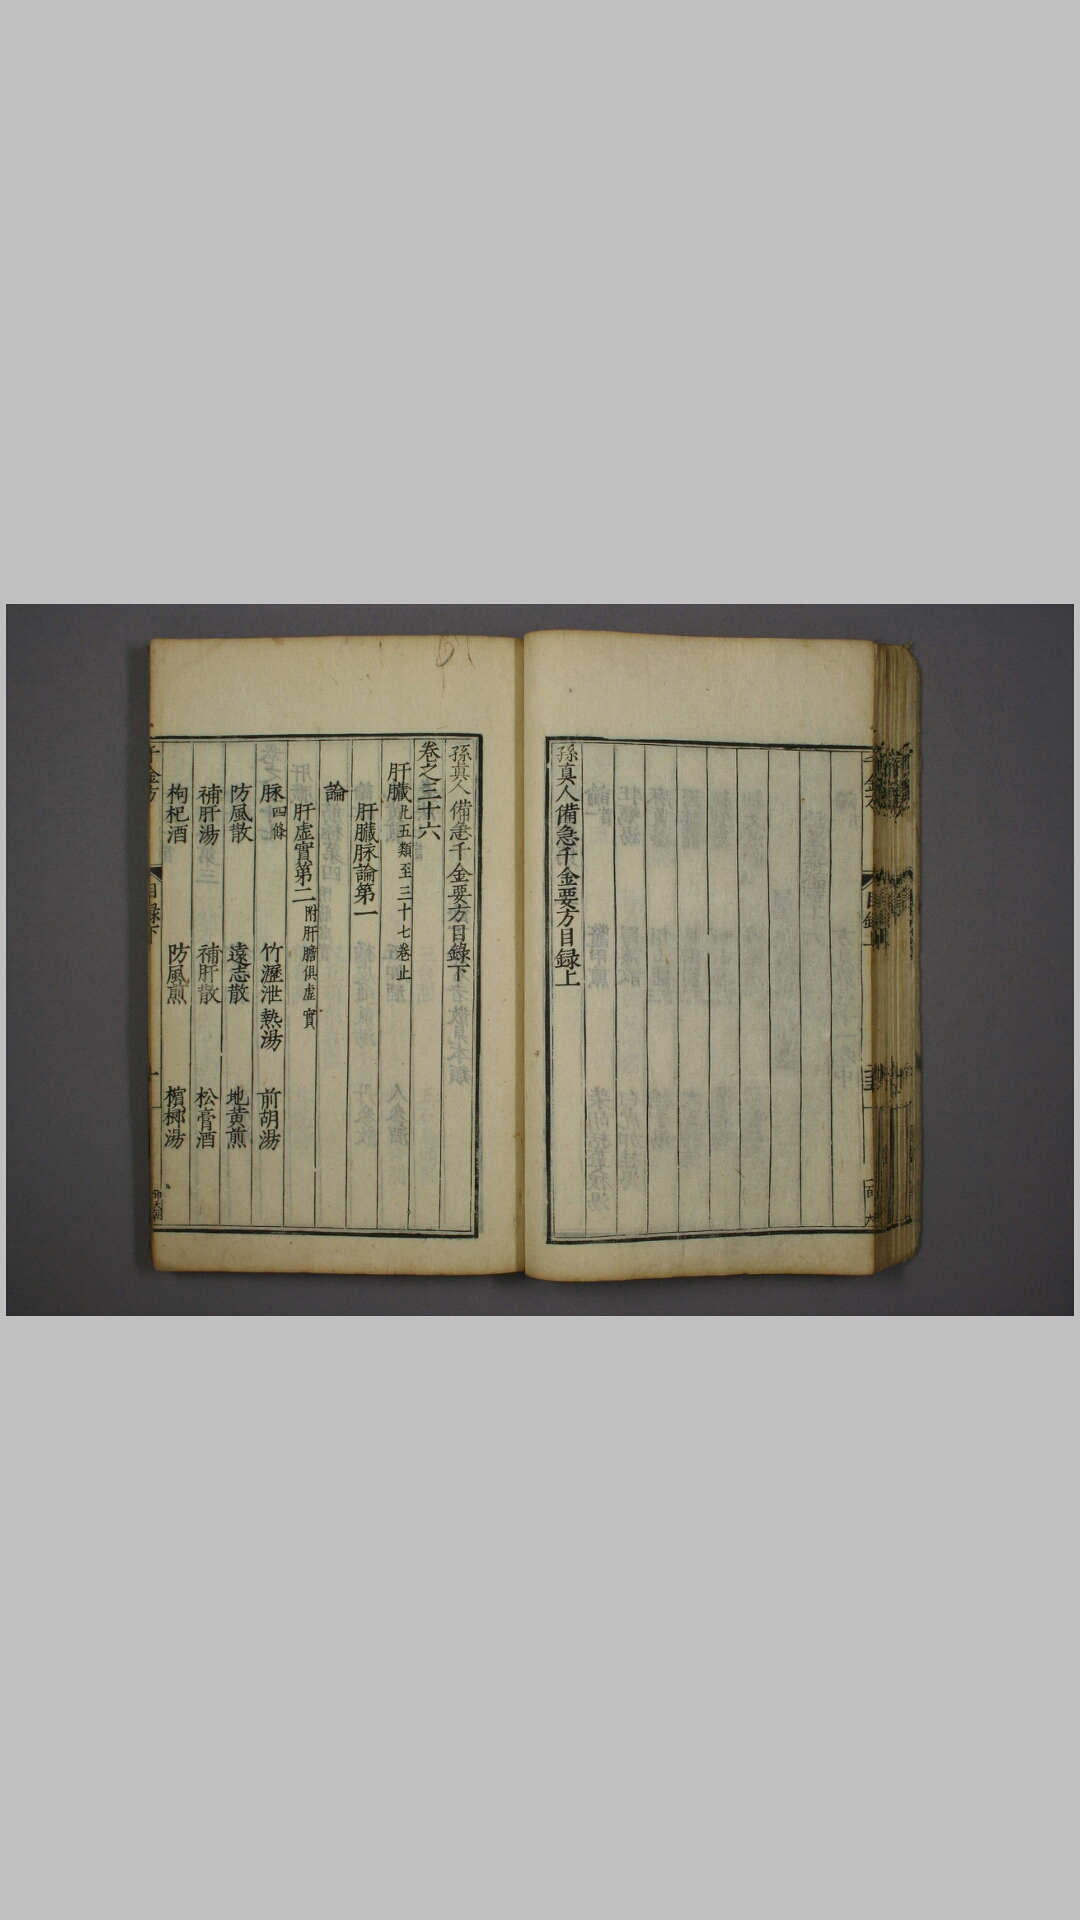 孫真人備急千金要方目録上
孫真人備急千金要方目錄下
卷之三十六
肝臟凡五類至三十七卷止
肝臟脉論第一
論一
肝虛實第二附肝膽俱虛實
脉四條 竹瀝泄熱湯 前胡湯
防風散 遠志散 地黄煎
補肝湯 補肝散 松膏酒
枸杞酒 防風煎 檳榔湯
千金方 目録下